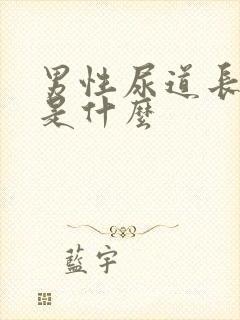 男性尿道長
是什麼
藍宇